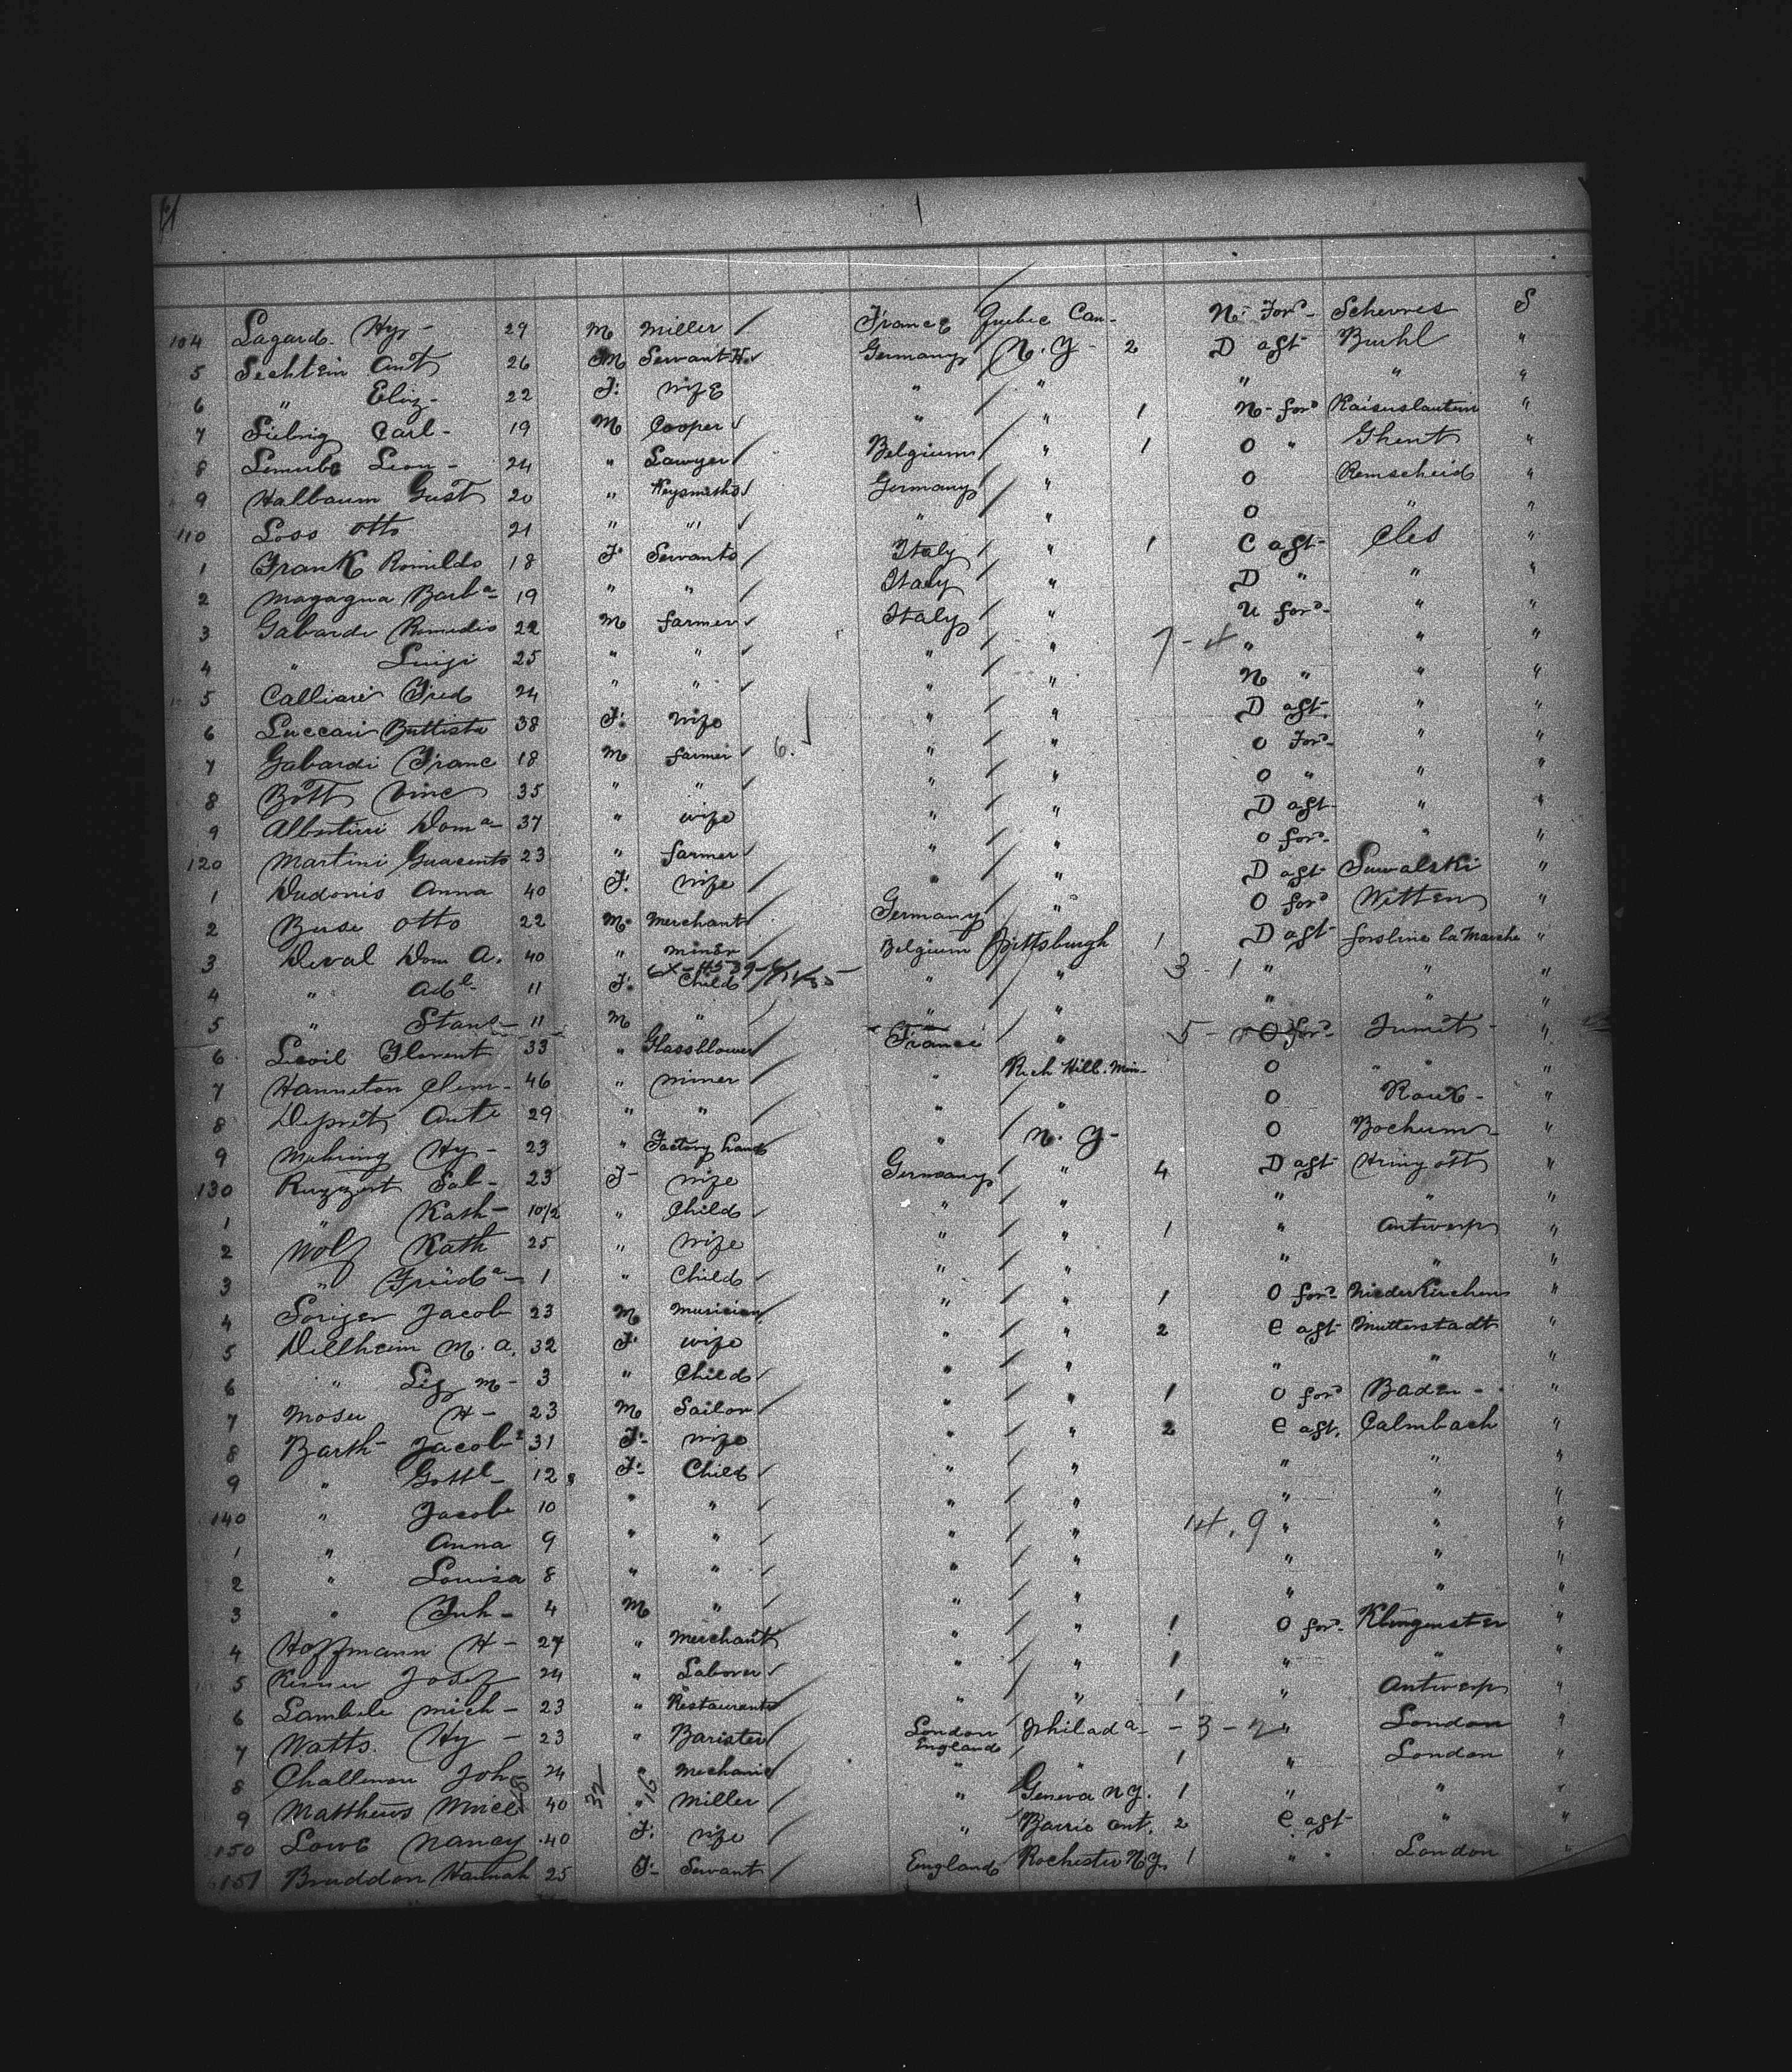 104 Lagard Hy- 29 M Miller France Quebec Can- N. For- Schevres S
5 Sechtein Ant 26 M Servant Germany N.Y- 2 D aft- Buhl "
6 " Eliz- 22 F. wife " " " " "
7 Siebrig Carl- 19 M Cooper " " 1 N- for- Kaiserslautern "
8 Lemurbe Leon- 24 " Lawyer Belgium " 1 O " Ghent "
9 Halbaum Gust 20 " Keysmiths Germany " O Remscheid "
110 Loss Otto 21 " " " " O " "
1 Frank Romildo 18 F. Servants Italy " 1 C aft- Cles "
2 Magagna Barba- 19 " " Italy " D " " "
3 Gabardi Romedio 22 M farmer Italy " U for- " "
4 " Luigi 25 " " " " 7-4 " " "
5 Calliari Fred 24 " " " " N " " "
6 Luccari Battista 38 F. wife " " D aft- " "
7 Gabardi Franc 18 M farmer 6. " " O For- " "
8 Bott Vinc 35 " " " " O " " "
9 Albertini Doma- 37 " wife " " D aft- " "
120 Martini Guacento 23 " farmer " " O for- " "
1 Dudonis Anna 40 F. wife " " D aft- Suwalski "
2 Buse Otto 22 M. Merchant Germany " O for- Witten "
3 Deval Dom A. 40 " miner Belgium Pittsburgh 1 D aft- forsline la Marche "
4 " Adl- 11 F. Child " " 3-1 " " "
5 " Stansl- 11 M " " " " " "
6 Levil Florent 33 " Glassblower France " 5- O for- Jumet- "
7 Hanneton Clem- 46 " miner " Rich Hill. Min- O " "
8 Deprit Ante 29 " " " " O Roux- "
9 Muhring Hy- 23 " Factory hand " N.Y- O Bochum- "
130 Ruzzert Sab- 23 F- wife Germany " 4 D aft- "
1 " Kath- 10/2 " Child " " " " "
2 Wolf Kath 25 " wife " " 1 " Antwerp "
3 " Frida- 1 " Child " " " " "
4 Soriger Jacob 23 M Musician " " 1 O for- Niederkirchen "
5 Dellheim M.A. 32 F. wife " " 2 C aft- Mutterstadt "
6 " Liz m- 3 " Child " " " " "
7 Moser H- 23 M Sailor " " 1 O for- Baden- "
8 Barth- Jacobe 31 F. wife " " 2 C aft. Calmbach "
9 " Gottl- 12 F- Child " " " " "
140 " Jacob 10 " " " " " " "
1 " Anna 9 " " " " 14,9 " " "
2 " Louisa 8 " " " " " " "
3 " Joh- 4 M " " " " " "
4 Hoffmann H- 27 " Merchant " " 1 O for- Klingmster "
5 Josef 24 " Laborer " " 1 " " "
6 Lambele Mich- 23 " Restaurants " " 1 " Antwerp "
7 Watts. Hy- 23 " Barister London England Philada- -3-2 " London "
8 Challenon Joh- 24 " Mechanic " " 1 " London "
9 Matthews 40 " Miller " Geneva N.Y. 1 " " "
150 Lowe Nancy 40 F. wife " Barrie Ont. 2 C aft- " "
151 Braddon Hannah 25 F- Servant England Rochester N.Y. 1 " " London "